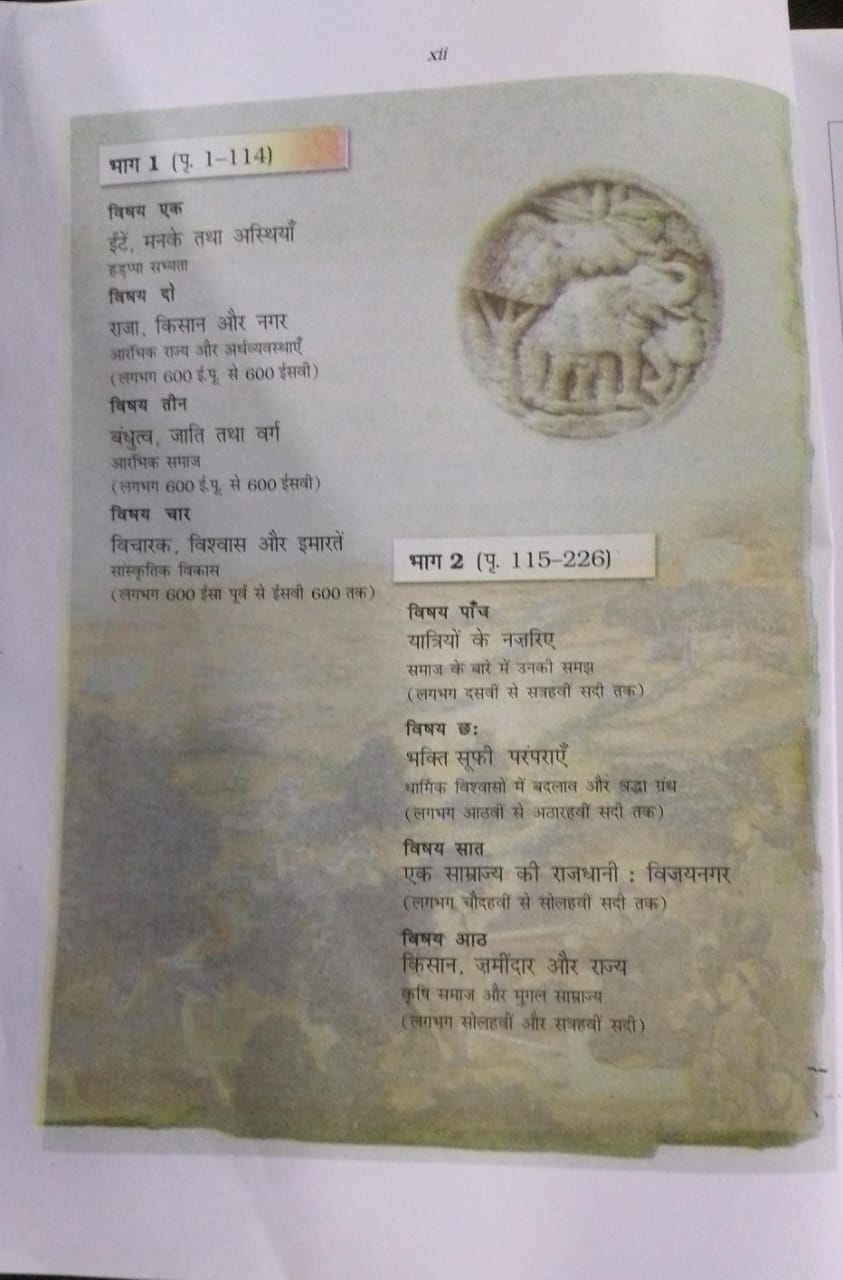 xii
भाग 1 (पृ. 1–114)
विषय एक
ईंटें, मनके तथा अस्थियाँ
हड़प्पा सभ्यता
विषय दो
राजा, किसान और नगर
आरंभिक राज्य और अर्थव्यवस्थाएँ
(लगभग 600 ई.पू. से 600 ईसवी)
विषय तीन
बंधुत्व, जाति तथा वर्ग
आरंभिक समाज
(लगभग 600 ई.पू. से 600 ईसवी)
विषय चार
विचारक, विश्वास और इमारतें
सांस्कृतिक विकास
(लगभग 600 ईसा पूर्व से ईसवी 600 तक)
भाग 2 (पृ. 115–226)
विषय पाँच
यात्रियों के नज़रिए
समाज के बारे में उनकी समझ
(लगभग दसवीं से सत्रहवीं सदी तक)
विषय छ:
भक्ति सूफी परंपराएँ
धार्मिक विश्वासों में बदलाव और श्रद्धा ग्रंथ
(लगभग आठवीं से अठारहवीं सदी तक)
विषय सात
एक साम्राज्य की राजधानी : विजयनगर
(लगभग चौदहवीं से सोलहवीं सदी तक)
विषय आठ
किसान, ज़मींदार और राज्य
कृषि समाज और मुगल साम्राज्य
(लगभग सोलहवीं और सत्रहवीं सदी)